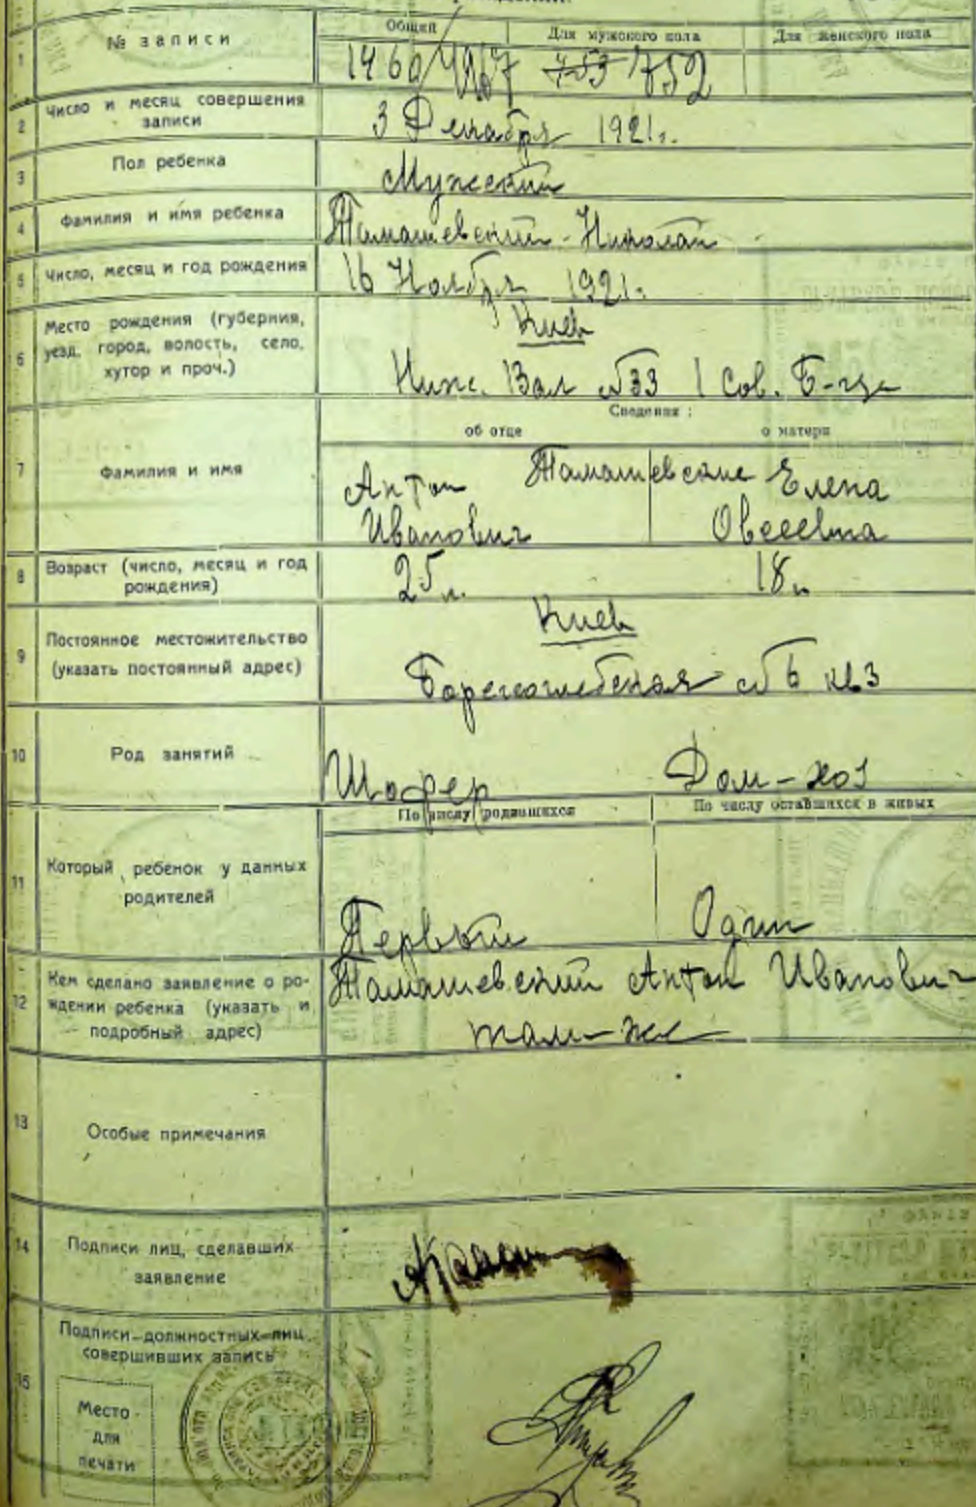 № записи
Общий Для мужского пола Для женского пола
1 1460 753 752
2 Число и месяц совершения записи
3 Декабря 1921г.
3 Пол ребенка
Мужеский
4 Фамилия и имя ребенка
Тамашевский - Николай
5 Число, месяц и год рождения
16 Ноября 1921г.
6 Место рождения (губерния,
уезд, город, волость, село,
хутор и проч.)
Киев
Ниж. Вал №33 1 Сов. Б-ца
Сведения:
об отце о матери
7 Фамилия и имя
Тамашевские
Антон Елена
Иванович
8 Возраст (число, месяц и год
рождения)
25 л. 18 л.
9 Постоянное местожительство
(указать постоянный адрес)
Киев
Борисоглебская №6 кв3
10 Род занятий
Шофер Дом-хоз
По числу родившихся По числу оставшихся в живых
11 Который ребенок у данных
родителей
Первый Один
12 Кем сделано заявление о ро-
ждении ребенка (указать и
подробный адрес)
Тамашевский Антон Иванович
там-же
13 Особые примечания
14 Подписи лиц, сделавших
заявление
15 Подписи должностных лиц
совершивших запись
Место
для
печати